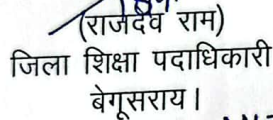 (राजदेव राम)
जिला शिक्षा पदाधिकारी
बेगूसराय।